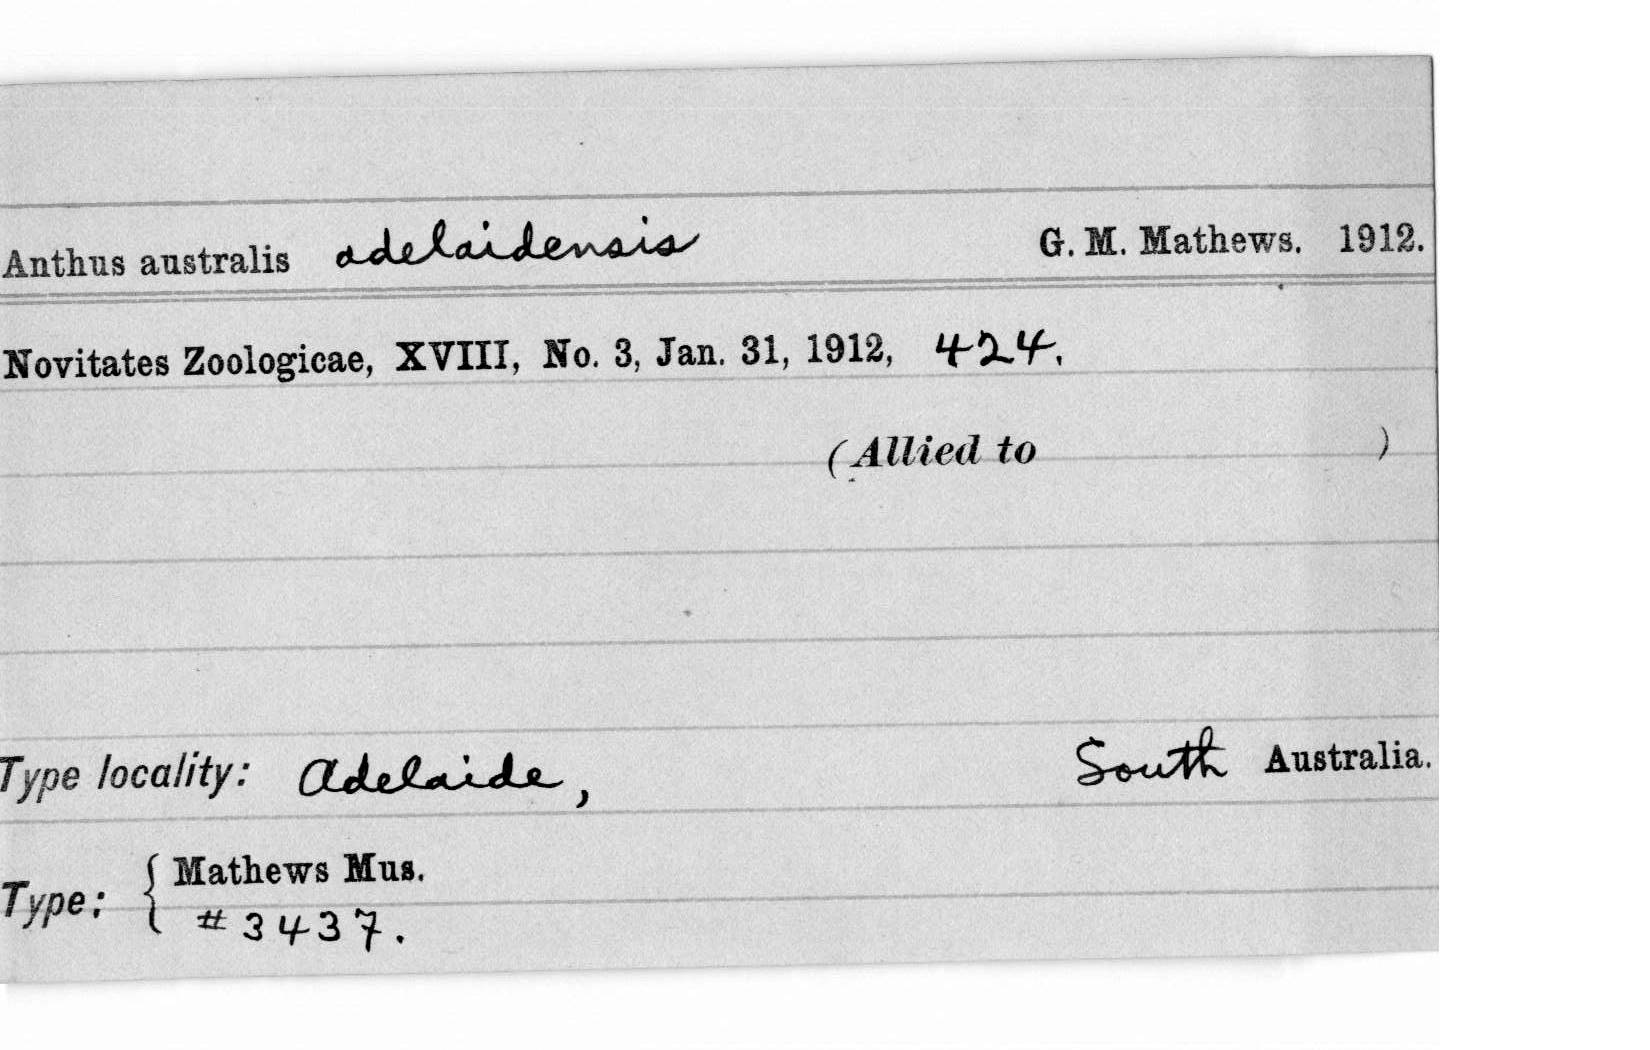 Anthus australis adelaidensis G. M. Mathews. 1912.
Novitates Zoologicae, XVIII, No. 3, Jan. 31, 1912, 424.
(Allied to )
Type locality: Adelaide, South Australia.
Type: { Mathews Mus.
#3437.